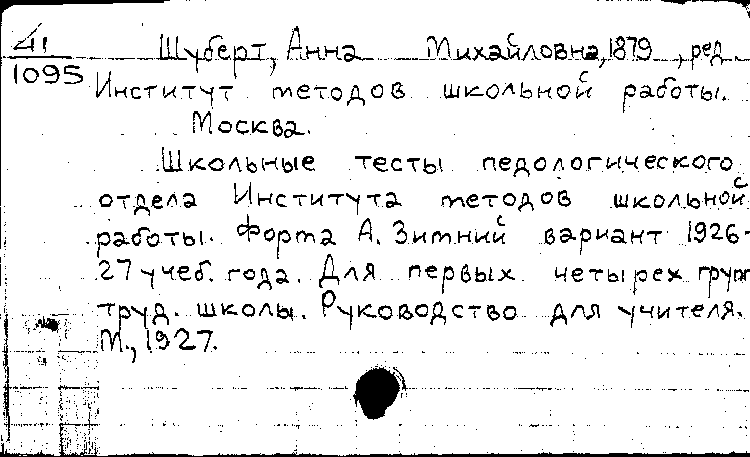 41 Шуберт, Анна Михайловна, 1879 , ред.
1095 Институт методов школьной работы.
Москва.
Школьные тесты педологического
отдела Института методов школьной
работы. Форма А. Зимний вариант 1926-
27 учеб. года. Для первых четырех групп
труд. школы. Руководство для учителя.
М., 1927.